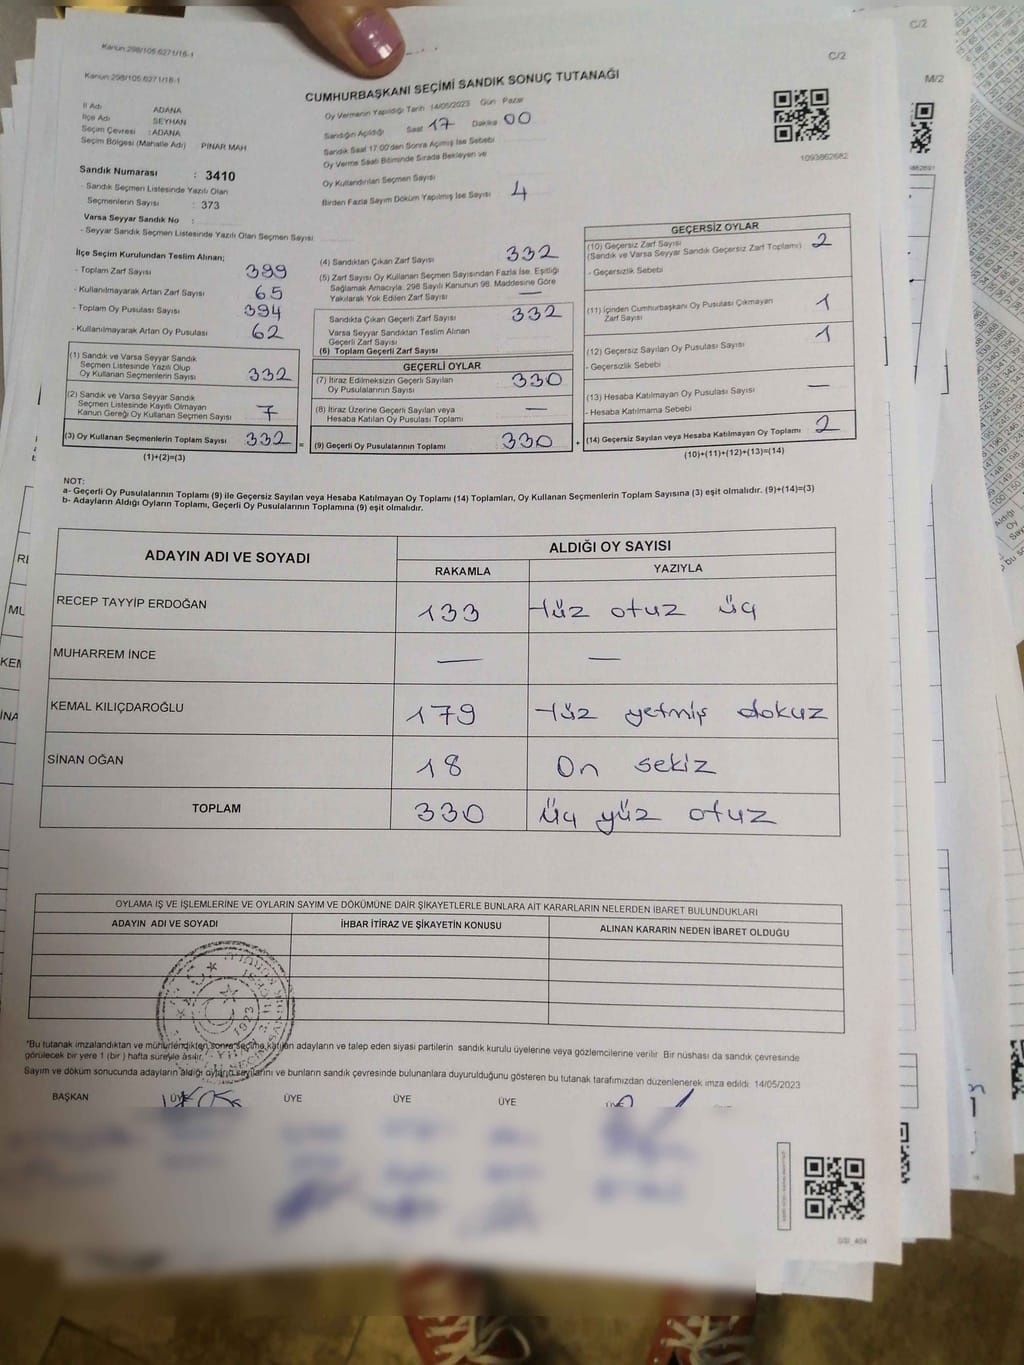 Kanun:298/105.6271/18-1
C/2
C/2
M/2
Kanun:298/105.6271/18-1
CUMHURBAŞKANI SEÇİMİ SANDIK SONUÇ TUTANAĞI
İl Adı ADANA
İlçe Adı SEYHAN
Seçim Çevresi : ADANA
Seçim Bölgesi (Mahalle Adı) PINAR MAH
Oy Vermenin Yapıldığı Tarih 14/05/2023 Gün Pazar
Sandığın Açıldığı Saat 17 Dakika 00
Sandık Saat 17:00'den Sonra Açılmış İse Sebebi
Oy Verme Saati Bitiminde Sırada Bekleyen ve
Oy Kullandırılan Seçmen Sayısı
Birden Fazla Sayım Döküm Yapılmış İse Sayısı 4
1093862682
Sandık Numarası : 3410
- Sandık Seçmen Listesinde Yazılı Olan
Seçmenlerin Sayısı : 373
Varsa Seyyar Sandık No :
- Seyyar Sandık Seçmen Listesinde Yazılı Olan Seçmen Sayısı
İlçe Seçim Kurulundan Teslim Alınan;
- Toplam Zarf Sayısı 399
- Kullanılmayarak Artan Zarf Sayısı 65
- Toplam Oy Pusulası Sayısı 394
- Kullanılmayarak Artan Oy Pusulası 62
(1) Sandık ve Varsa Seyyar Sandık
Seçmen Listesinde Yazılı Olup
Oy Kullanan Seçmenlerin Sayısı 332
(2) Sandık ve Varsa Seyyar Sandık
Seçmen Listesinde Kayıtlı Olmayan
Kanun Gereği Oy Kullanan Seçmen Sayısı 7
(3) Oy Kullanan Seçmenlerin Toplam Sayısı 332 =
(1)+(2)=(3)
(4) Sandıktan Çıkan Zarf Sayısı 332
(5) Zarf Sayısı Oy Kullanan Seçmen Sayısından Fazla İse, Eşitliği
Sağlamak Amacıyla, 298 Sayılı Kanunun 98. Maddesine Göre
Yakılarak Yok Edilen Zarf Sayısı —
Sandıkta Çıkan Geçerli Zarf Sayısı 332
Varsa Seyyar Sandıktan Teslim Alınan
Geçerli Zarf Sayısı
(6) Toplam Geçerli Zarf Sayısı
GEÇERLİ OYLAR
(7) İtiraz Edilmeksizin Geçerli Sayılan
Oy Pusulalarının Sayısı 330
(8) İtiraz Üzerine Geçerli Sayılan veya
Hesaba Katılan Oy Pusulası Toplamı —
(9) Geçerli Oy Pusulalarının Toplamı 330 +
GEÇERSİZ OYLAR
(10) Geçersiz Zarf Sayısı 2
(Sandık ve Varsa Seyyar Sandık Geçersiz Zarf Toplamı)
- Geçersizlik Sebebi
(11) İçinden Cumhurbaşkanı Oy Pusulası Çıkmayan 1
Zarf Sayısı
(12) Geçersiz Sayılan Oy Pusulası Sayısı 1
- Geçersizlik Sebebi
(13) Hesaba Katılmayan Oy Pusulası Sayısı —
- Hesaba Katılmama Sebebi
(14) Geçersiz Sayılan veya Hesaba Katılmayan Oy Toplamı 2
(10)+(11)+(12)+(13)=(14)
NOT:
a- Geçerli Oy Pusulalarının Toplamı (9) ile Geçersiz Sayılan veya Hesaba Katılmayan Oy Toplamı (14) Toplamları, Oy Kullanan Seçmenlerin Toplam Sayısına (3) eşit olmalıdır. (9)+(14)=(3)
b- Adayların Aldığı Oyların Toplamı, Geçerli Oy Pusulalarının Toplamına (9) eşit olmalıdır.
ADAYIN ADI VE SOYADI
ALDIĞI OY SAYISI
RAKAMLA YAZIYLA
RECEP TAYYİP ERDOĞAN 133 Yüz otuz üç
MUHARREM İNCE — —
KEMAL KILIÇDAROĞLU 179 Yüz yetmiş dokuz
SİNAN OĞAN 18 On sekiz
TOPLAM 330 Üç yüz otuz
OYLAMA İŞ VE İŞLEMLERİNE VE OYLARIN SAYIM VE DÖKÜMÜNE DAİR ŞİKAYETLERLE BUNLARA AİT KARARLARIN NELERDEN İBARET BULUNDUKLARI
ADAYIN ADI VE SOYADI İHBAR İTİRAZ VE ŞİKAYETİN KONUSU ALINAN KARARIN NEDEN İBARET OLDUĞU
1923
*Bu tutanak imzalandıktan ve mühürlendikten sonra seçime katılan adayların ve talep eden siyasi partilerin sandık kurulu üyelerine veya gözlemcilerine verilir. Bir nüshası da sandık çevresinde
görülecek bir yere 1 (bir) hafta süreyle asılır.
Sayım ve döküm sonucunda adayların aldığı oyların sayılarını ve bunların sandık çevresinde bulunanlara duyurulduğunu gösteren bu tutanak tarafımızdan düzenlenerek imza edildi. 14/05/2023
BAŞKAN ÜYE ÜYE ÜYE ÜYE ÜYE ÜYE